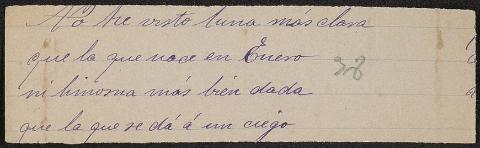 No he visto luna más clara
que la que nace en Enero
ni limosna más bien dada
que la que se dá á un ciego